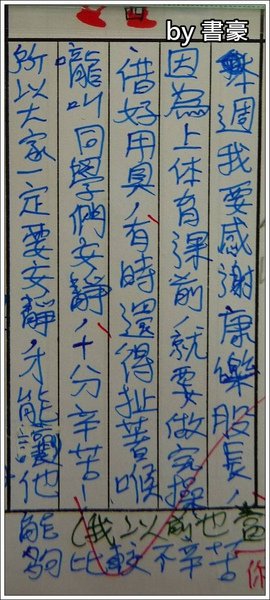 by 書豪
四
本週我要感謝康樂股長,
因為上体育課前,就要做完操
借好用具,有時還得扯著喉
嚨叫同學們安靜,十分辛苦!
所以大家一定要安靜,才能讓他
能夠比較不辛苦
(我以前也當